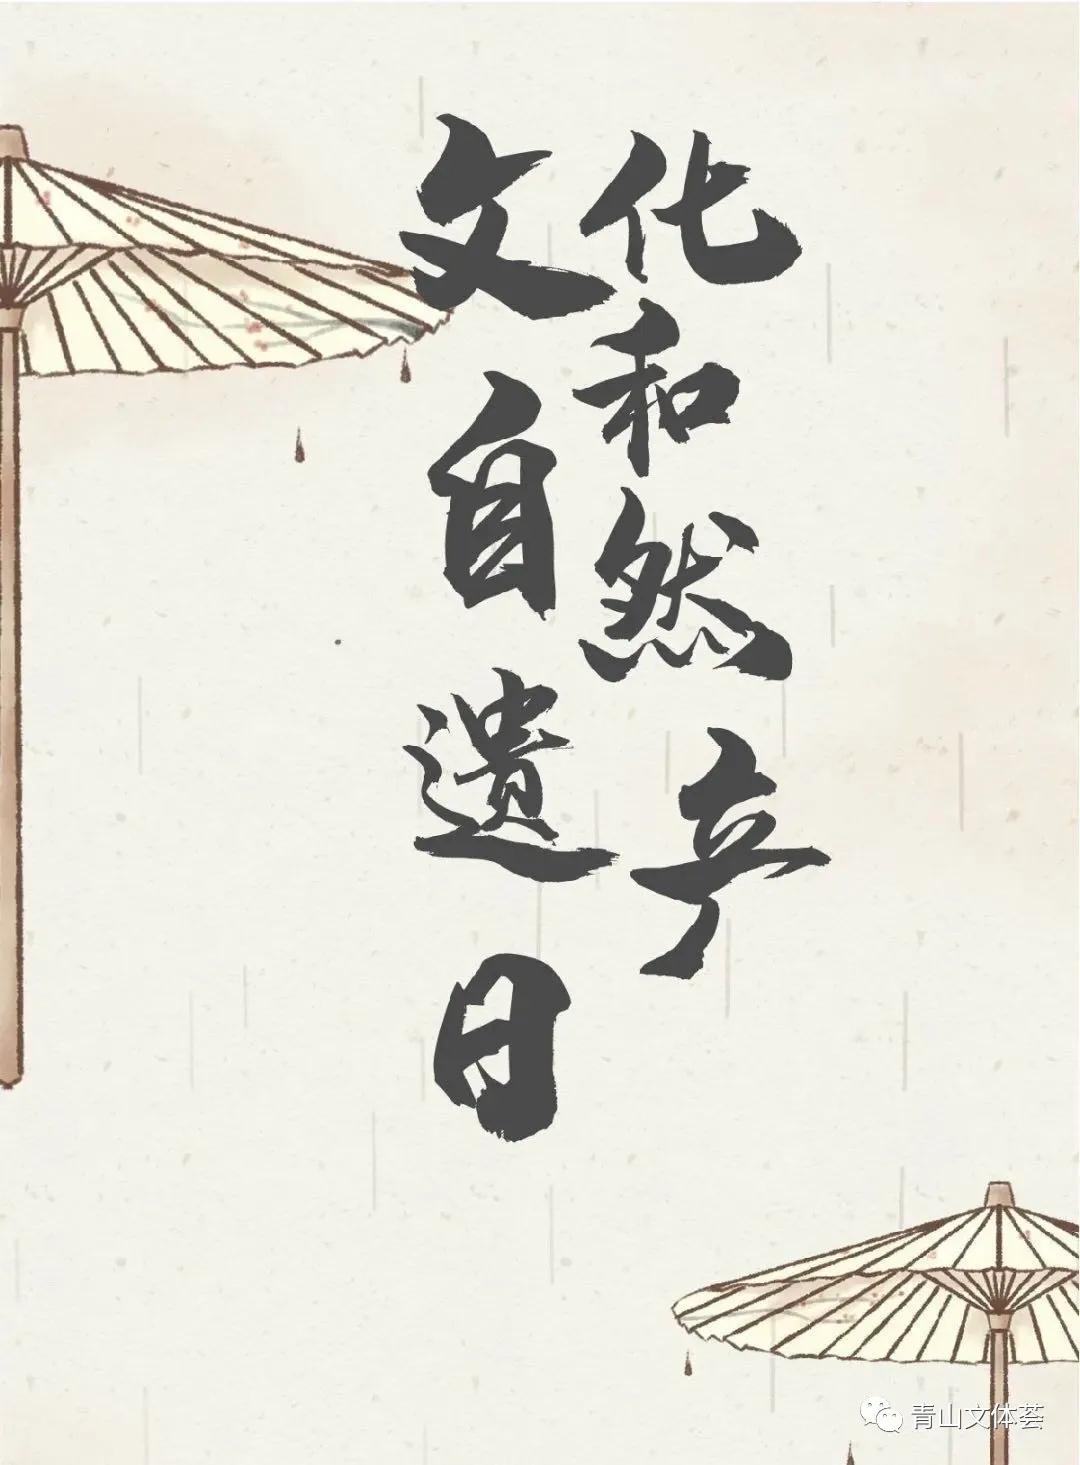 文化
和
自然
遗产
日
青山文体荟